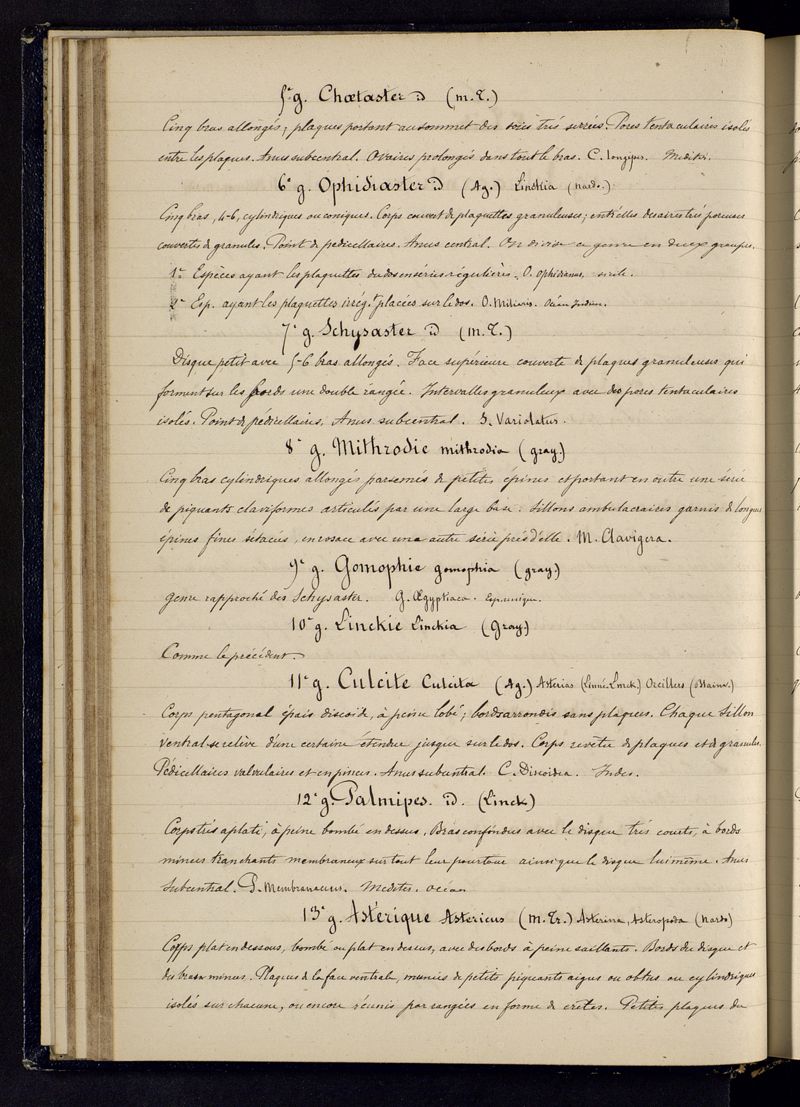 5e g. Chætaster D (m.T.)
Cinq bras allongés, plaques portant au sommet des soies très serrées. Pores tentaculaires isolés
entre les plaques. Anus subcentral. Ovaires prolongés dans tout le bras. C. longipes. Mediter.
6e g. Ophidiaster D (Ag.) Linckia (Nardo.)
Cinq bras, 4-6, cylindriques ou coniques. Corps couvert de plaquettes granuleuses; entr'elles des aires très poreuses
couvertes de granules. Point de pedicellaires. Anus central. On divise ce genre en deux groupes.
1e Espèces ayant les plaquettes du dos en séries régulières. O. ophidianus. sicile.
2e Esp. ayant les plaquettes irrég.t placées sur le dos. O. Miliaris. Océan Indien.
7e g. Schysaster D (m.T.)
Disque petit avec 5-6 bras allongés. Face supérieure couverte de plaques granuleuses qui
forment sur les bords une double rangée. Intervalles granuleux avec des pores tentaculaires
isolés. Point de pédicellaires. Anus subcentral. S. Variolatus.
8e g. Mithrodie mithrodia (gray.)
Cinq bras cylindriques allongés parsemés de petites épines et portant en outre une série
de piquants claviformes articulés par une large base. Sillons ambulacraires garnis de longues
épines fines sétacées, en rosace avec une autre série près d'elle. M. Clavigera.
9e g. Gomophie gomophia (gray.)
genre rapproché des Schysaster. G. Ægyptiaca. Esp. unique.
10e g. Linckie Linckia (Gray.)
Comme le précédent.
11e g. Culcite Culcita (Ag.) Asterias (Linné. Lmck.) Oreillers (Blainv.)
Corps pentagonal épais discoide, à peine lobé; bords arrondis sans plaques. Chaque Sillon
ventral se relève d'une certaine étendue jusque sur le dos. Corps revêtu de plaques et de granules.
Pédicellaires valvulaires et en pinces. Anus subcentral. C. Discoidea. Indes.
12e g. Palmipes. D. (Linck)
Corps très aplati, à peine bombé en dessus. Bras confondus avec le disque très courts, à bords
minces tranchants membraneux sur tout leur pourtour ainsi que le disque lui même. Anus
Subcentral. P. Membranaceus. Mediter. océan
13e g. Astérique Astericus (m.Tr.) Asterina, Asteropsda (Nardo)
Corps plat en dessous, bombé ou plat en dessus, avec des bords à peine saillants. Bords du disque et
des bras minces. Plaques de la face ventrale, munies de petits piquants aigus ou obtus ou cylindriques
isolés sur chacune, ou encore réunis par rangées en forme de crêtes. Petites plaques du